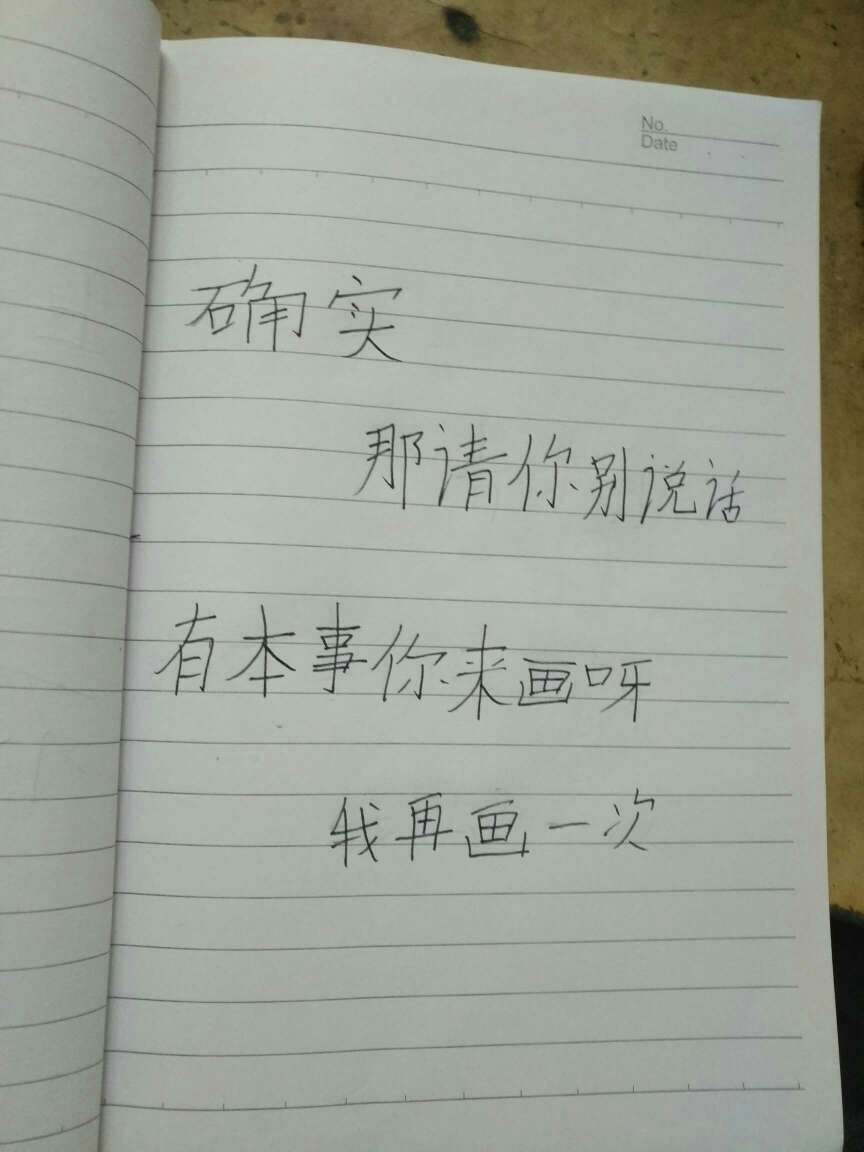 No.
Date
确实
那请你别说话
有本事你来画呀
我再画一次